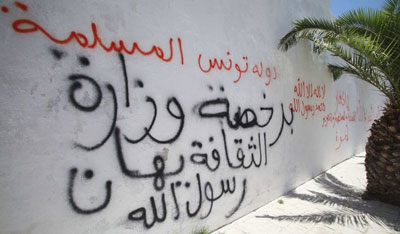 دوله تونس المسلمة
برخصة وزارة
الثقافة يهان
رسول الله
لا اله الا الله
محمد رسول الله